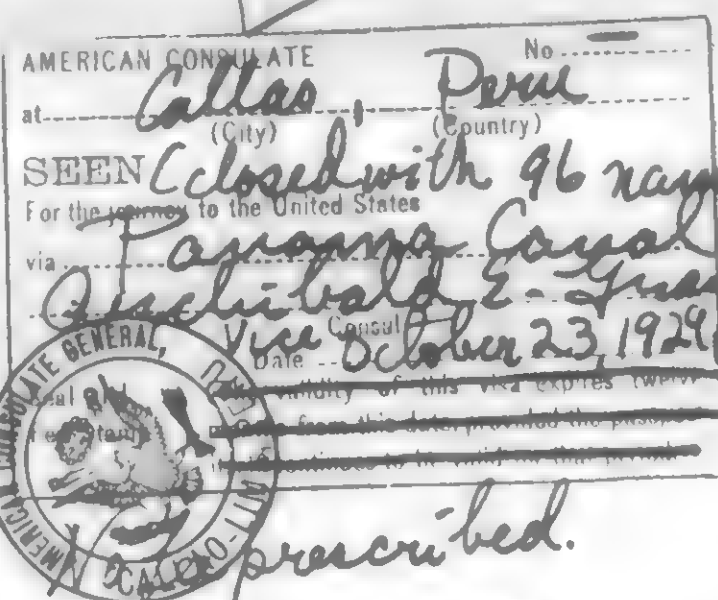 AMERICAN CONSULATE No
at Callao, Peru
(City) (Country)
SEEN (Closed with 96 nam
For the journey to the United States
via Panama Canal
Archibald E.
Vice Consul
Date October 23, 1929
validity of this visa expires twelve
from this date provided the passp
continues to be valid
AMERICAN CONSULATE GENERAL,
CALLAO-LIMA
prescribed.